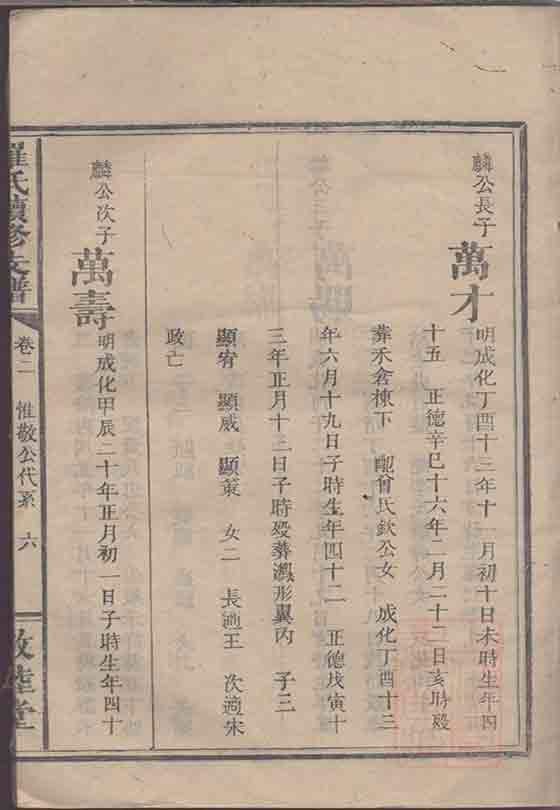 麟公長子
萬才
明成化丁酉十三年十一月初十日未時生年四
十五 正德辛巳十六年二月二十二日亥時殁
葬禾倉棟下 配曾氏欽公女 成化丁酉十三
年六月十九日子時生年四十二 正德戊寅十
三年正月十三日子時殁葬 形巽丙 子三
顯宥 顯威 顯策 女二 長適王 次適宋
政亡
麟公次子
萬壽
明成化甲辰二十年正月初一日子時生年四十
羅氏續修支譜
卷二 惟敬公代系 六
敦睦堂